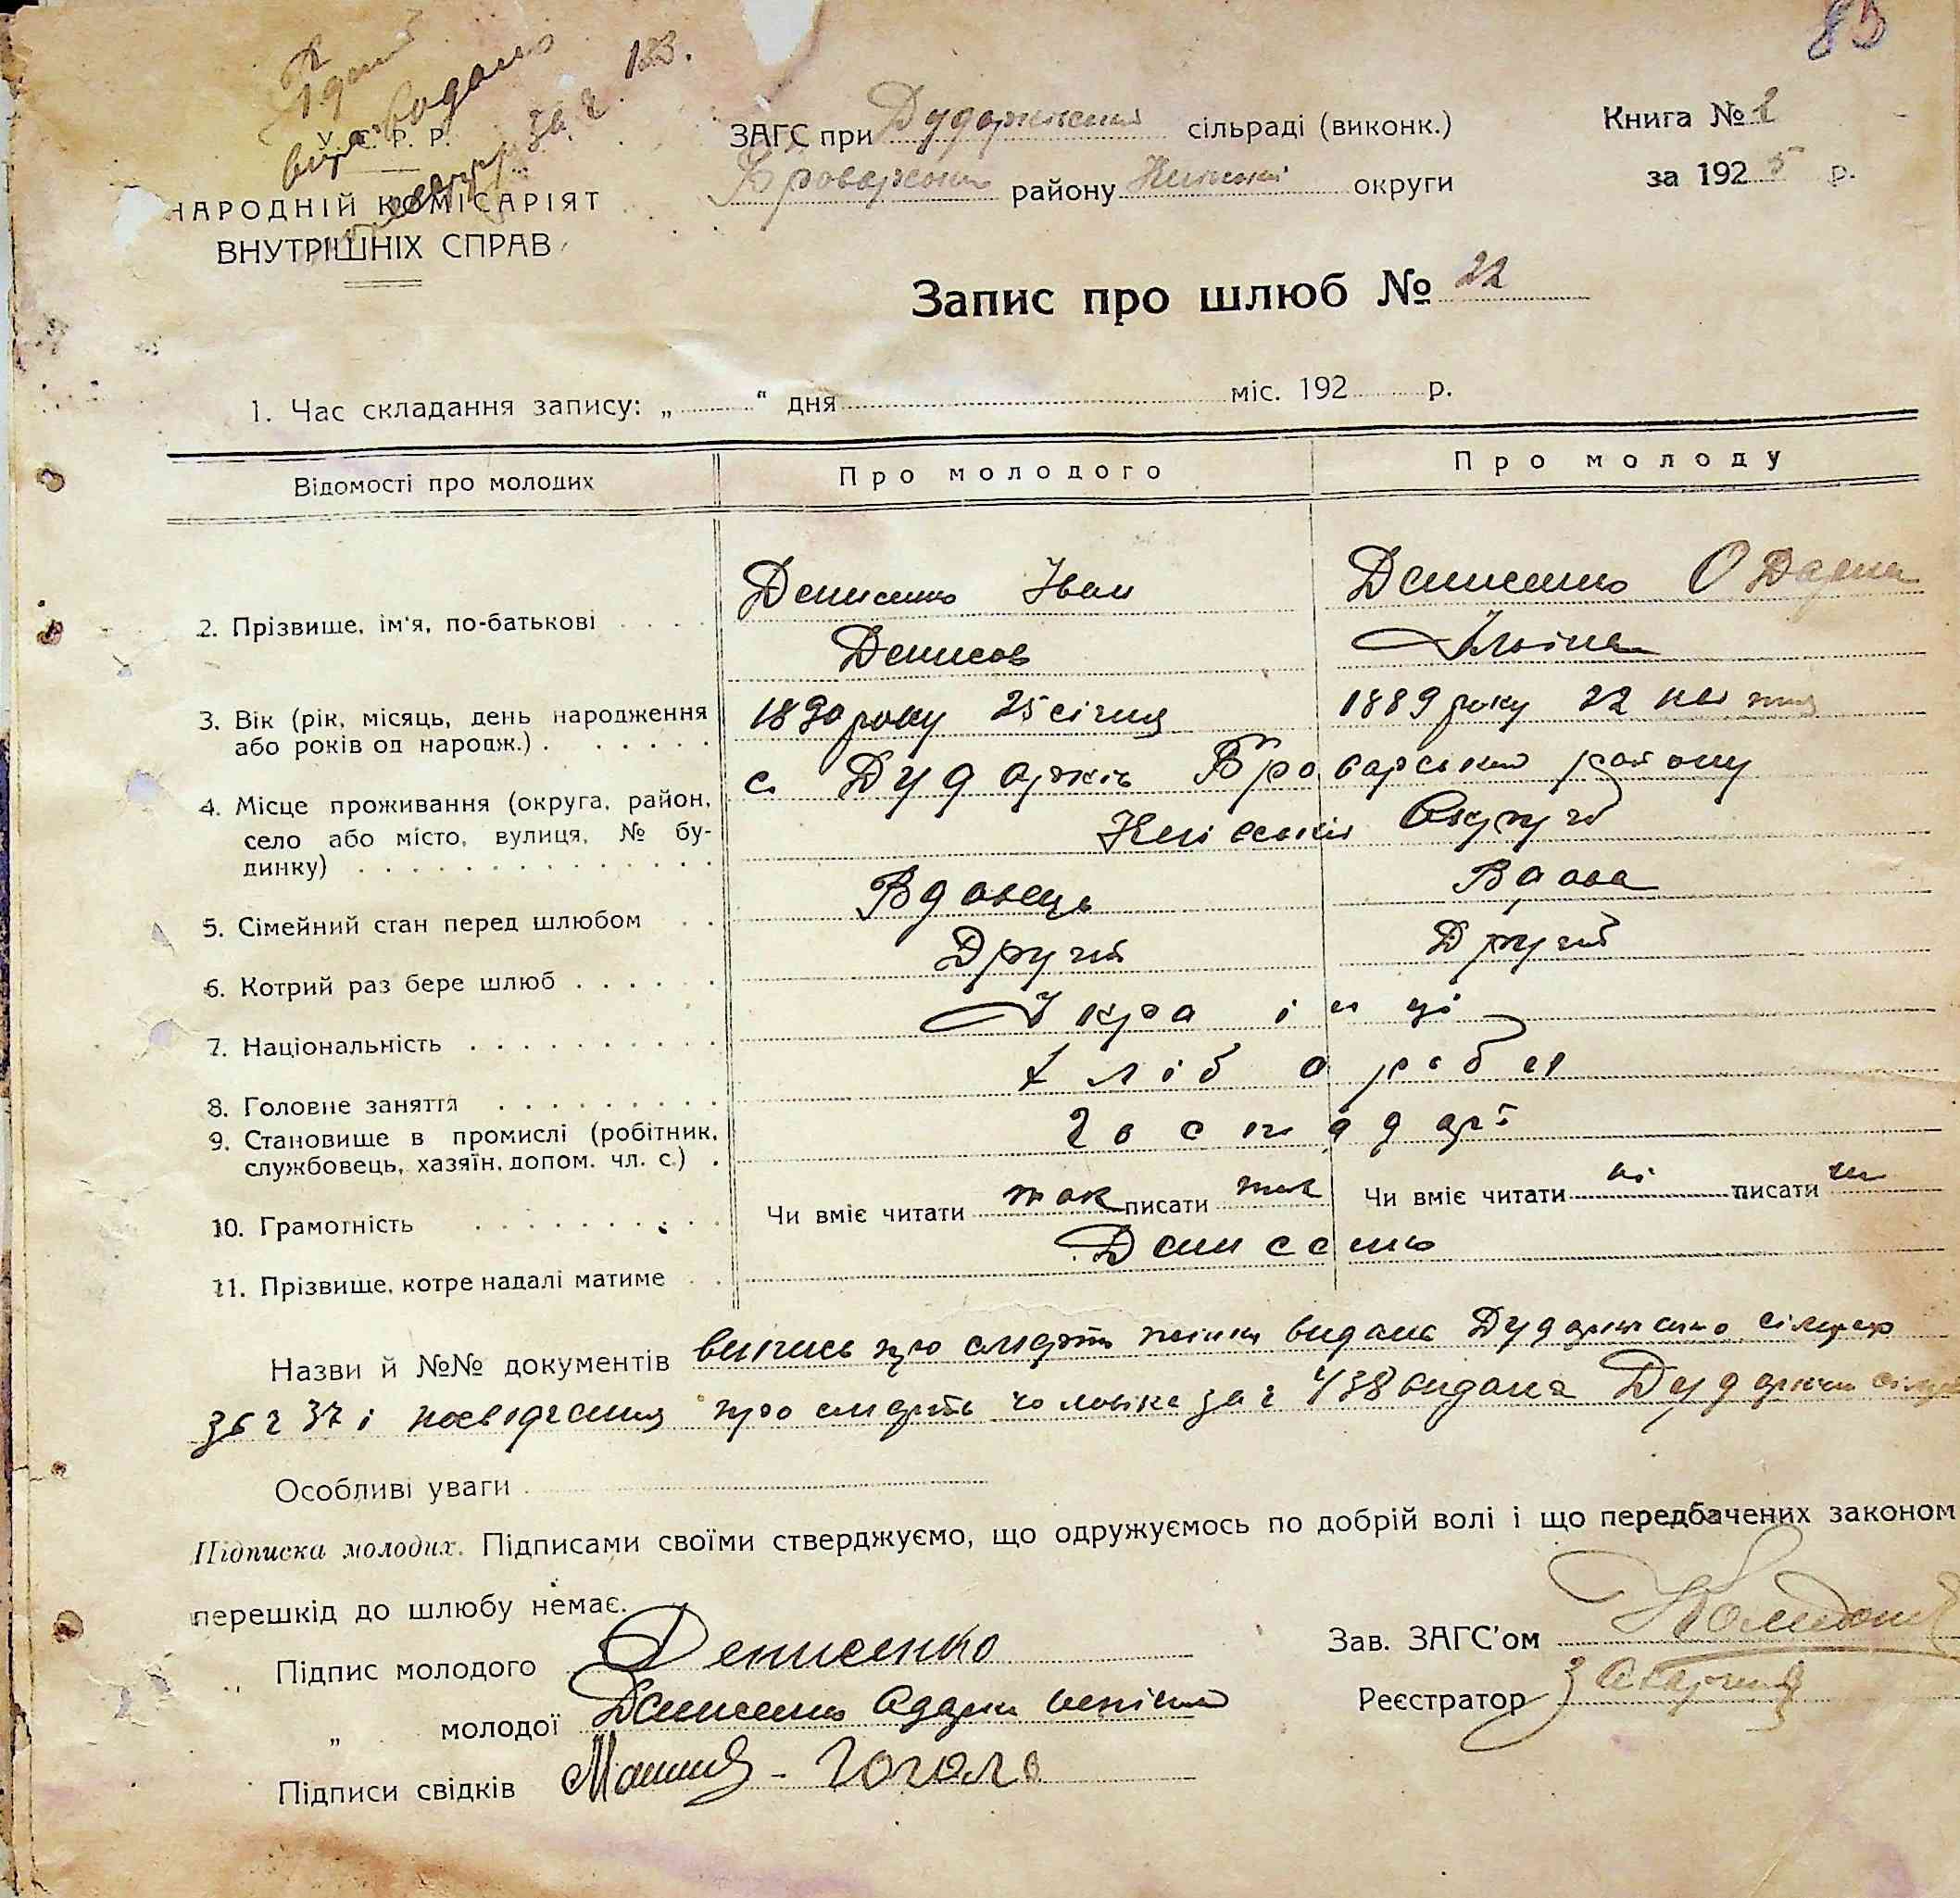 83
видано
за ч. 183.
У. С. Р. Р.
НАРОДНІЙ КОМІСАРІЯТ
ВНУТРІШНІХ СПРАВ
ЗАГС при Дударківській сільраді (виконк.)
Броварського району Київської округи
Книга № 2
за 1925 р.
Запис про шлюб № 22
1. Час складання запису: „ “ дня міс. 192 р.
Відомості про молодих Про молодого Про молоду
2. Прізвище, ім'я, по-батькові Денисенко Іван Денисенко Одарка
Денисов Юхим
3. Вік (рік, місяць, день народження 1890 року 25 січня 1889 року 22 квітня
або років од народж.)
4. Місце проживання (округа, район, с. Дударків Броварський району
село або місто, вулиця, № бу- Київської Округи
динку)
5. Сімейний стан перед шлюбом Вдовець Вдова
6. Котрий раз бере шлюб Другий Другий
7. Національність Українці
8. Головне заняття Хлібороби
9. Становище в промислі (робітник, Господарі
службовець, хазяїн, допом. чл. с.)
10. Грамотність Чи вміє читати так писати так Чи вміє читати ні писати ні
11. Прізвище, котре надалі матиме Денисенко
Назви й №№ документів випись про смерть жінки видана Дударківською сільрад
за ч 37 і посвідчення про смерть чоловіка за ч 438 видана Дударків сільр
Особливі уваги
Підписка молодих. Підписами своїми стверджуємо, що одружуємось по добрій волі і що передбачених законом
перешкід до шлюбу немає.
Підпис молодого Денисенко
Зав. ЗАГС'ом
„ молодої Денисенко Одарка
Реєстратор
Підписи свідків Гоголь